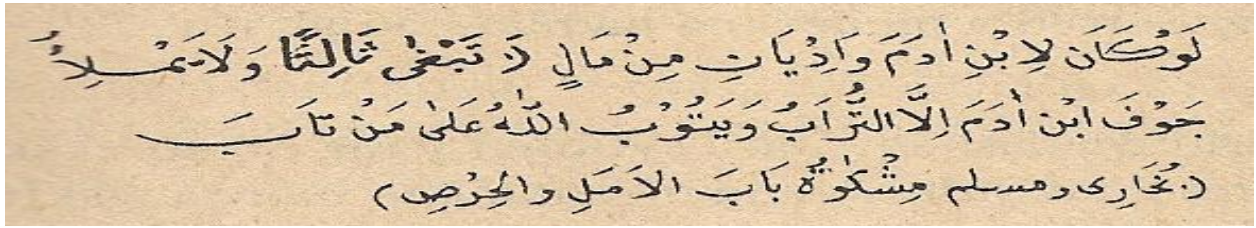 لَوْكَانَ لِابْنِ اٰدَمَ وَادِيَاتِ مِنْ مَالٍ لَا تَبْغٰى ثَالِثًا وَلَا يَمْلَأُ
جَوْفَ ابْنِ اٰدَمَ اِلَّا التُّرَابُ وَيَتُوْبُ اللّٰهُ عَلٰى مَنْ تَابَ
(بُخَارِى ومسلم مِشْكٰوةُ بَابَ الاَمَلِ والحِرْصِ)